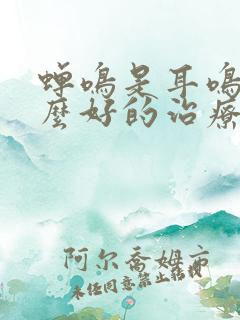 蝉鸣是耳鸣
麼好的治療
阿尔乔姆市
未经同意禁止转载